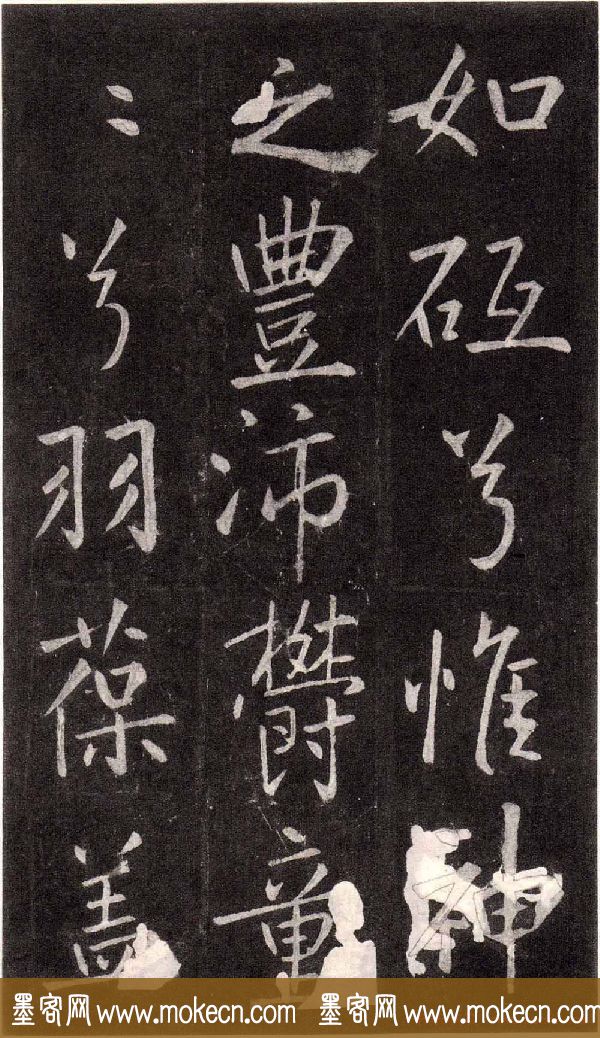 如砥兮惟神
之豐沛欝童
〻兮羽葆盖
墨客网 www.mokecn.com 墨客网 www.mokecn.com